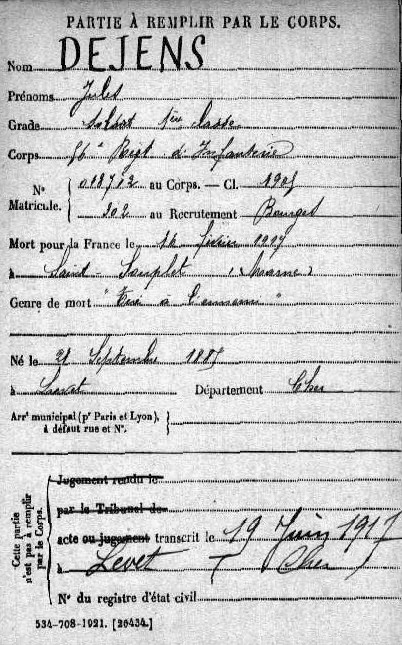 PARTIE À REMPLIR PAR LE CORPS.
Nom DEJENS
Prénoms Jules
Grade Soldat 1ère Classe
Corps 56e Regt d'Infanterie
Nº Matricule. 018712 au Corps. — Cl. 1905
202 au Recrutement Bourges
Mort pour la France le 16 février 1917
à Saint-Souplet (Marne)
Genre de mort "Tué à l'ennemi"
Né le 28 Septembre 1885
à Levet Département Cher
Arrt municipal (pr Paris et Lyon),
à défaut rue et Nº.
Cette partie
n'est pas à remplir
par le Corps.
Jugement rendu le
par le Tribunal de
acte ou jugement transcrit le 19 Juin 1917
à Levet Cher
Nº du registre d'état civil
534-708-1921. [26434.]